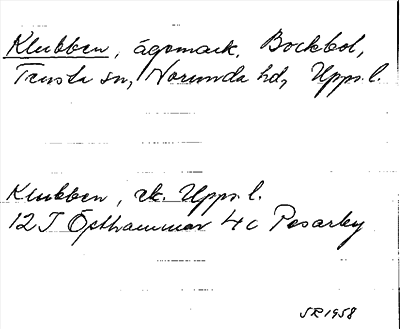 Klubben, ägomark, Bockbol,
Tensta sn, Norunda hd, Upps. l.
Klubben, ek. Upps. l.
12 I Östhammar 4c Pesarby
SR 1958